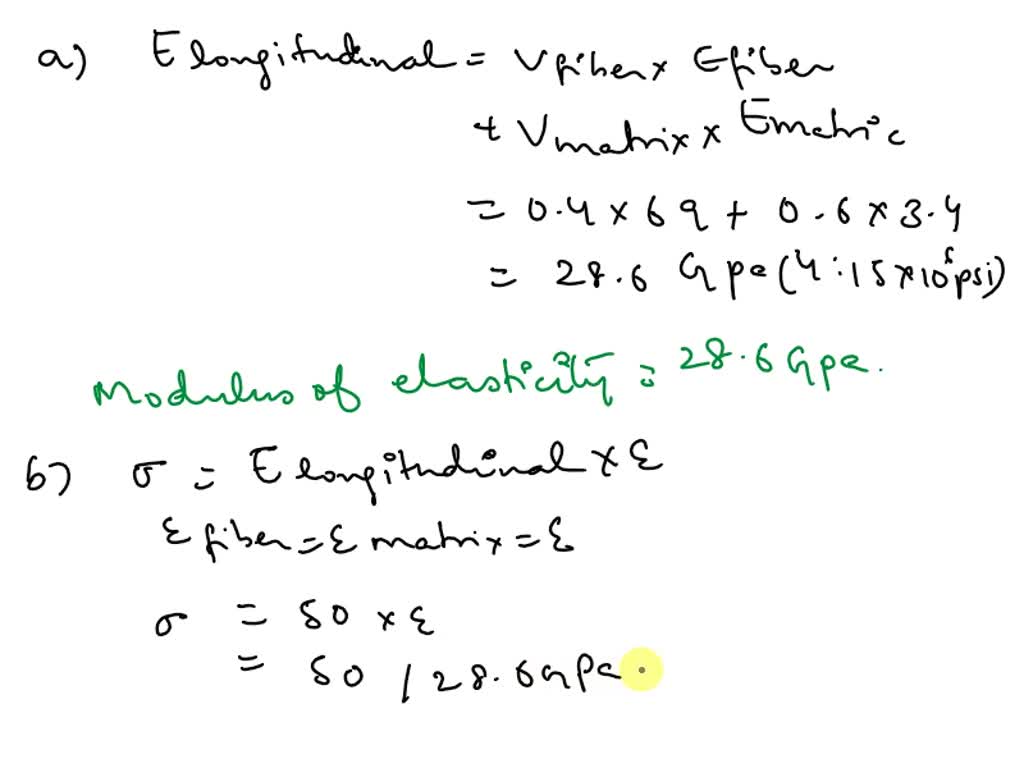 a) E longitudinal = V fiber x E fiber
+ V matrix x E matric
= 0.4 x 69 + 0.6 x 3.4
= 28.6 Gpa (4.15 x 10^6 psi)
Modulus of elasticity = 28.6 Gpa.
b) σ = E longitudinal x ε
ε fiber = ε matrix = ε
σ = 50 x ε
= 50 / 28.6 GPa